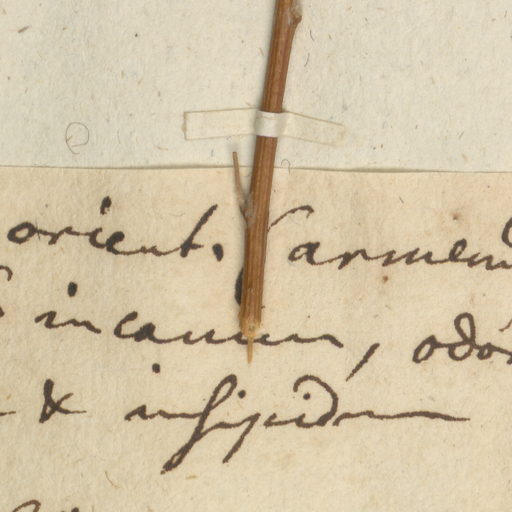 orient. Sarmen
incanum, odo
& insipidum